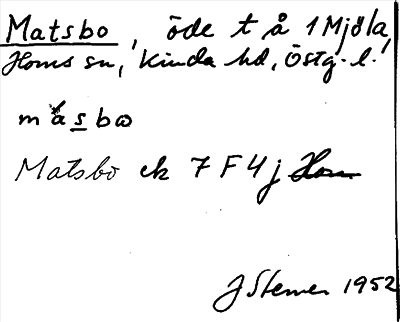 Matsbo, öde t å 1 Mjöla,
Horns sn, Kinda hd, Östg. l.
màsbω
Matsbo ek 7 F 4 j Horn
J Sterner 1952